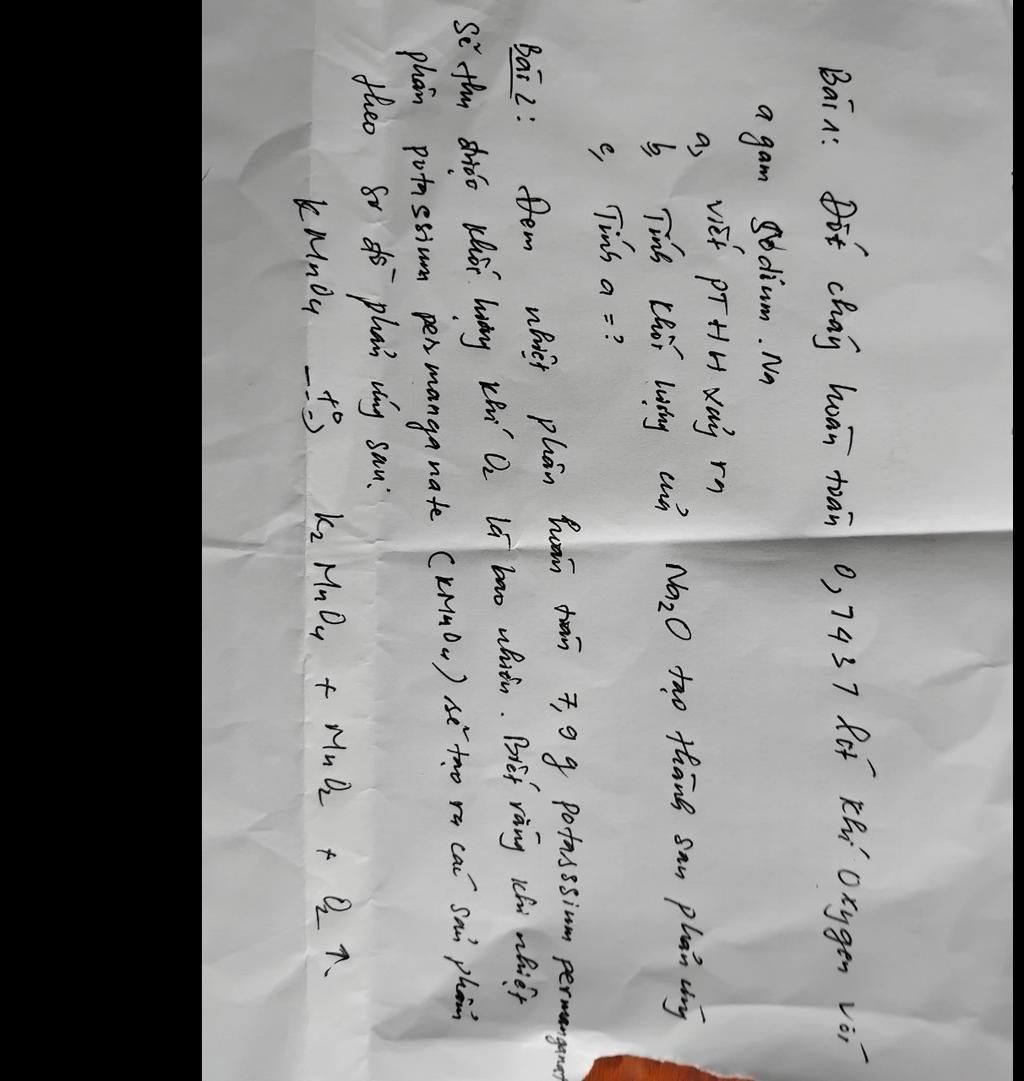 Bài 1: Đốt cháy hoàn toàn 0,7437 lít khí Oxygen với
a gam Sodium. Na
a, viết PTHH xảy ra
b, Tính khối lượng của Na₂O tạo thành sau phản ứng
c, Tính a = ?
Bài 2: Đem nhiệt phân hoàn toàn 7,9 g potasssium permanganat
Sẽ thu được khối lượng khí O₂ là bao nhiêu. Biết rằng khi nhiệt
phân potassium permanganate (KMnO₄) sẽ tạo ra các sản phẩm
theo sơ đồ phản ứng sau:
KMnO₄ --t°--> K₂MnO₄ + MnO₂ + O₂ ↑